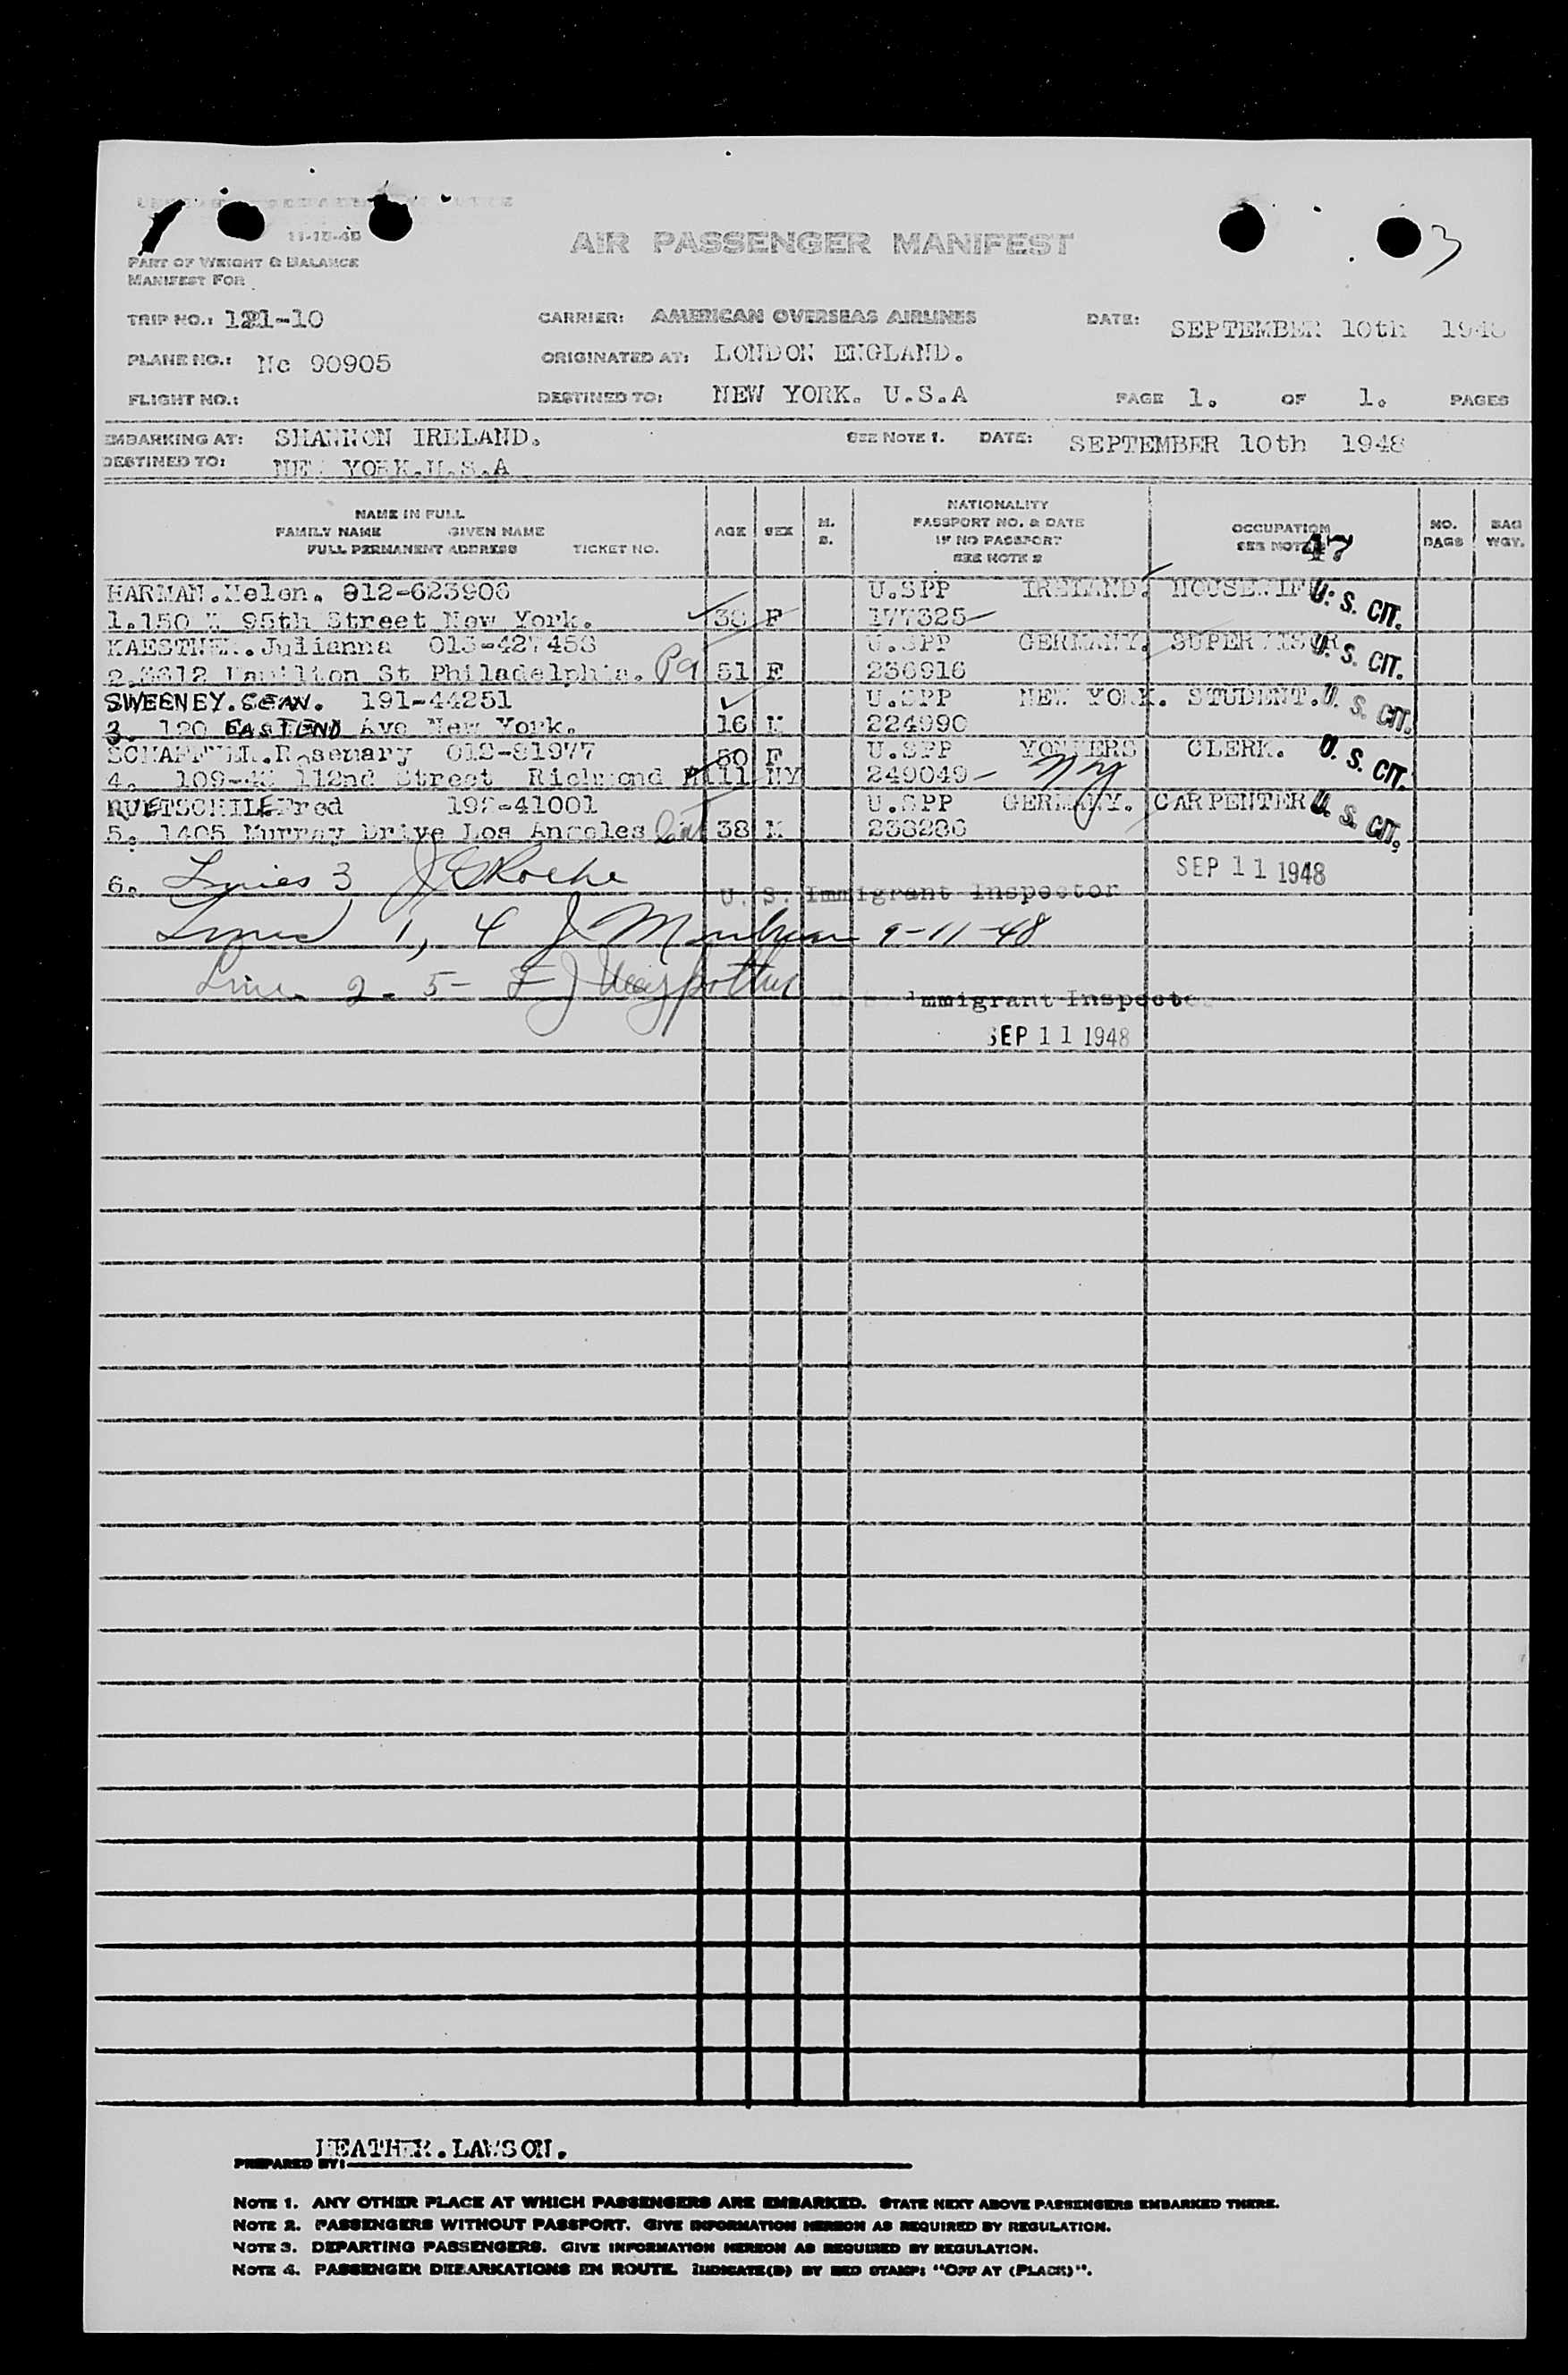 11-15-45
AIR PASSENGER MANIFEST
3
PART OF WEIGHT & BALANCE
MANIFEST FOR
TRIP NO.: 121-10 CARRIER: AMERICAN OVERSEAS AIRLINES DATE: SEPTEMBER 10th 1948
PLANE NO.: Nc 90905 ORIGINATED AT: LONDON ENGLAND.
FLIGHT NO.: DESTINED TO: NEW YORK. U.S.A PAGE 1. OF 1. PAGES
EMBARKING AT: SHANNON IRELAND. SEE NOTE 1. DATE: SEPTEMBER 10th 1948
DESTINED TO: NEW YORK.U.S.A
NAME IN FULL
FAMILY NAME GIVEN NAME
FULL PERMANENT ADDRESS TICKET NO.
AGE SEX M. S.
NATIONALITY
PASSPORT NO. & DATE
IF NO PASSPORT
SEE NOTE 2
OCCUPATION
SEE NOTE 47
NO. BAGS
BAG WGT.
HARMAN.Helen. 012-623906 U.SPP IRELAND. HOUSEWIFE U. S. CIT.
1.150 W 95th Street New York. 38 F 177325
KAESTNER.Julianna 013-427458 U.SPP GERMANY. SUPERVISOR U. S. CIT.
2. Hamilton St Philadelphia. Pa 51 F 236916
SWEENEY.SEAN. 191-44251 U.SPP NEW YORK. STUDENT. U. S. CIT.
3. 120 EAST END Ave New York. 16 M 224990
Rosemary 012-81977 50 F U.SPP YONKERS CLERK. U. S. CIT.
4. 112nd Street Richmond Hill NY 249049 NY
Fred 192-41001 U.SPP GERMANY. CARPENTER U. S. CIT.
5. 1405 Murray Drive Los Angeles Cal 38 M 238286
6. Lines 3 J Roche SEP 11 1948
U. S. Immigrant Inspector
Lines 1, 4 J 9-11-48
Line 2 - 5 - F J
Immigrant Inspector
SEP 11 1948
HEATHER.LAWSON.
PREPARED BY:
NOTE 1. ANY OTHER PLACE AT WHICH PASSENGERS ARE EMBARKED. STATE NEXT ABOVE PASSENGERS EMBARKED THERE.
NOTE 2. PASSENGERS WITHOUT PASSPORT. GIVE INFORMATION HEREON AS REQUIRED BY REGULATION.
NOTE 3. DEPARTING PASSENGERS. GIVE INFORMATION HEREON AS REQUIRED BY REGULATION.
NOTE 4. PASSENGER DEBARKATIONS EN ROUTE. INDICATE(D) BY RED STAMP: "OFF AT (PLACE)".